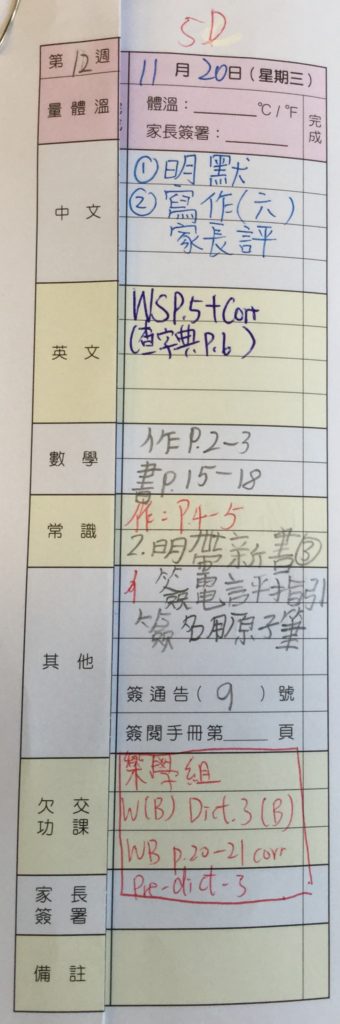 5D
第12週
11月20日(星期三)
量體溫
體溫：℃/℉
家長簽署：
完成
中文
①明默
②寫作(六)
家長評
英文
WSP.5+Corr
(查字典P.6)
數學
作P.2-3
書P.15-18
常識
作：P.4-5
2.明帶新書③
其他
簽電評指引
簽名用原子筆
簽通告(9)號
簽閱手冊第頁
欠交功課
樂學組
W(B) Dict.3(B)
WB p.20-21 corr
Pre-dict-3
家長簽署
備註